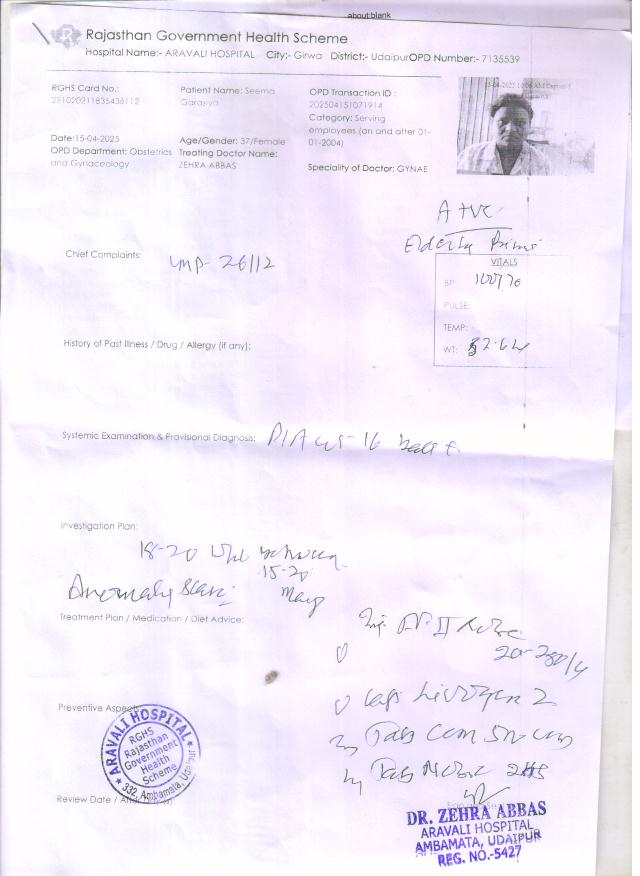 about:blank
Rajasthan Government Health Scheme
Hospital Name:- ARAVALI HOSPITAL City:- Girwa District:- Udaipur OPD Number:- 7135539
RGHS Card No.:
291020211835438112
Patient Name: Seema
Garasiya
OPD Transaction ID :
202504151071914
Category: Serving
employees (on and after 01-
01-2004)
Date:15-04-2025
OPD Department: Obstetrics
and Gynaceology
Age/Gender: 37/Female
Treating Doctor Name:
ZEHRA ABBAS
Speciality of Doctor: GYNAE
Elderly Primi
Chief Complaints:
LMP- 26/12
VITALS
BP: 100/70
PULSE:
TEMP:
WT:
History of Past Illness / Drug / Allergy (if any):
Systemic Examination & Provisional Diagnosis:
P/A ut- 16
Investigation Plan:
18-20
15-20
Anomaly Scan
May
Treatment Plan / Medication / Diet Advice:
Inj.
Preventive Aspect
Cap Livogen Z
Tab
Tab
ARAVALI HOSPITAL
RGHS
Rajasthan
Government
Health
Scheme
332, Ambamata, Udaipur
Review Date /
DR. ZEHRA ABBAS
ARAVALI HOSPITAL
AMBAMATA, UDAIPUR
REG. NO.-5427